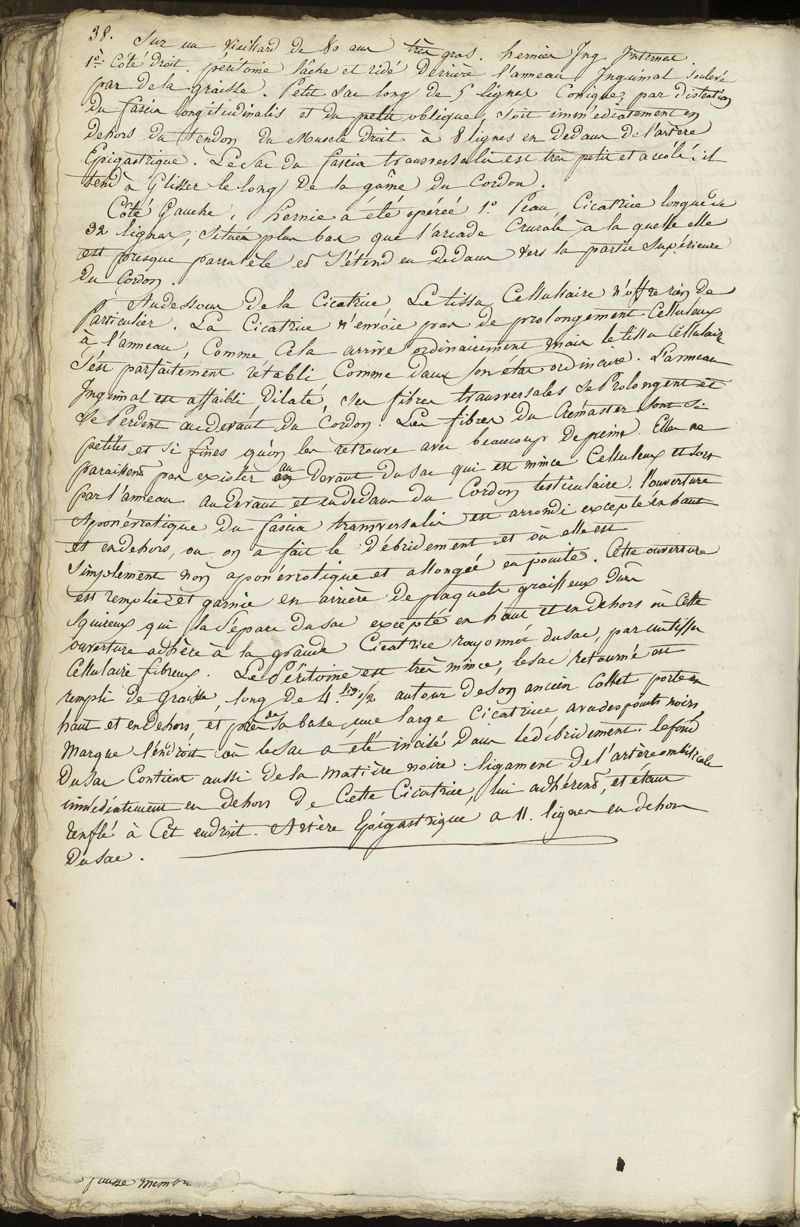 38. Sur un vieillard de 80 ans très gras. hernies Ing. Internes.
1° Côté droit. péritoine lâche et ridé derrière l'anneau Inguinal soulevé
par de la graisse. Petit sac long de 5 lignes Conique, par distention
du fascia longitudinalis et du petit oblique, soit immédiatement en
dehors du tendon du Muscle droit à 8 lignes en dedans de l'artère
Epigastrique. Le Sac du fascia transversalis est très petit et acolé; il
tend à Glisser le long de la gaîne du Cordon.
Côté Gauche, hernie a été opérée 1° Peau, Cicatrice longue de
32 lignes, située plus bas que l'arcade Crurale à la quelle elle
est presque parralèle et s'étend en dedans vers la partie Supérieure
du Cordon.
Audessous de la Cicatrice Le tissu Cellulaire n'offre rien de
Particulier. La Cicatrice n'envoie pas de prolongement Celluleux
à l'anneau, Comme Cela arrive ordinairement mais le tissu Cellulaire
s'est parfaitement rétabli Comme dans son état ordinaire. L'anneau
Inguinal est affaibli, dilaté, ses fibres transversales se Prolongent et
se Perdent audevant du Cordon. Les fibres du Crémaster sont si
petites et si fines qu'on les retrouve avec beaucoup de peine Elles ne
paraissent pas exister au Devant du sac qui est mince Celluleux et sort
par l'anneau audevant et endedans du Cordon testiculaire, l'ouverture
Aponévrotique du fascia transversalis est arrondi excepté en haut
et endehors, où on a fait le débridement et où elle est
Simplement non aponévrotique et allongée en pointe. Cette ouverture
est remplie et garnie en arrière de paquets graisseux durs
Squireux qui la sépare du sac excepté en haut et en dehors où Cette
ouverture adhère à la grande Cicatrice rayonnée du sac, par un tissu
Cellulaire fibreux. Le Péritoine est très mince, le sac retourné est
rempli de Graisse, long de 4 lig. 1/2 autour de son ancien Collet porte en
haut et en dehors, et près de sa base une large Cicatrice avec des points noirs
Marque l'endroit où le sac a été incisé dans le débridement. le fond
Du Sac Contient aussi de la matière noire. ligament de l'artère ombilicale
immédiatement en dehors de Cette Cicatrice, lui adhérent, et étant
renflé à Cet endroit. Artère Epigastrique à 11. lignes en dehors
Du sac.